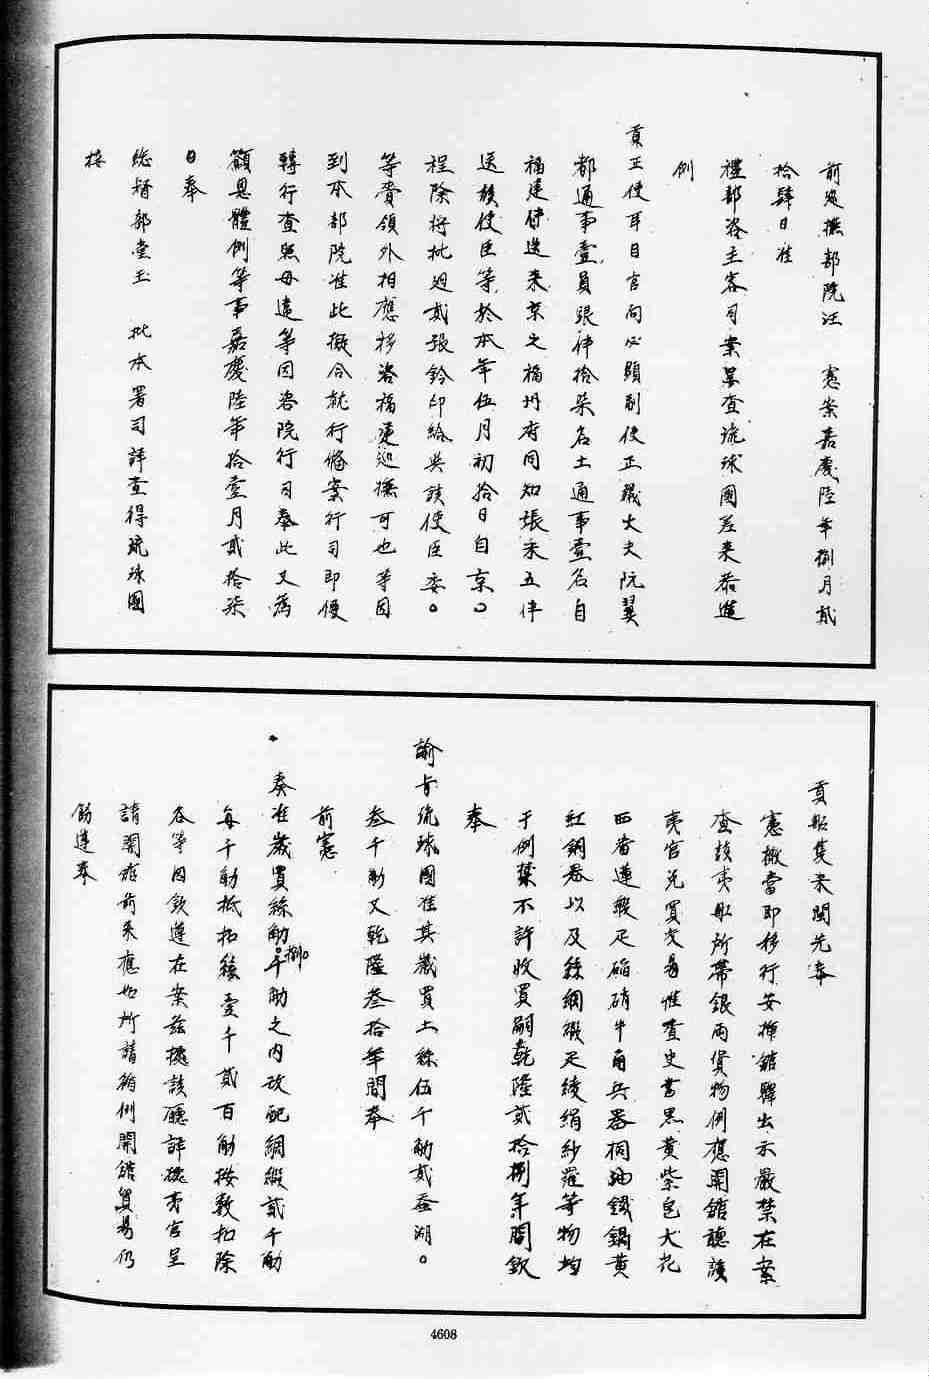 前巡撫部院汪　憲案嘉慶陸年捌月貳
拾肆日准
禮部咨主客司案呈查琉球國差來恭進
例
貢正使耳目官向必顯副使正議大夫阮翼
都通事壹員跟伴拾柒名土通事壹名自
福建伴送來京之福州府同知張采五伴
送該使臣等於本年伍月初拾日自京〇
程除將批迴貳張鈐印給與該使臣委〇
等賚領外相應移咨福建巡撫可也等因
到本部院准此擬合就行備案行司即便
轉行查照毋違等因咨院行司奉此又為
籲恩體例等事嘉慶陸年拾壹月貳拾柒
日奉
總督部堂玉　批本署司詳查得琉球國
接
貢船隻來閩先奉
憲檄當即移行安插館驛出示嚴禁在案
查該夷船所帶銀兩貨物例應開館聽該
夷官兌買交易惟查史書黑黃紫皂大花
西番蓮緞疋硝磺牛角兵器桐油鐵鍋黃
紅銅器以及絲綢緞疋綾絹紗羅等物均
干例禁不許收買嗣乾隆貳拾捌年間欽
奉
諭旨琉球國准其歲買土絲伍千觔貳蚕湖〇
叁千觔又乾隆叁拾年間奉
前憲
奏准歲買絲觔捌千觔之內改配綢緞貳千觔
每千觔抵扣絲壹千貳百觔按數扣除
各等因欽遵在案茲據該廳詳據夷官呈
請開館前來應如所請循例開館貿易仍
飭遵奉
4608